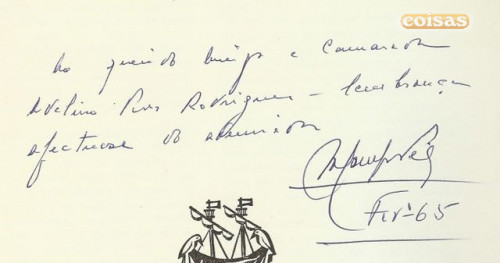 coisas
Ao querido amigo e camarada
Avelino Pires Rodrigues – lembrança
afectuosa do
Fevº 65